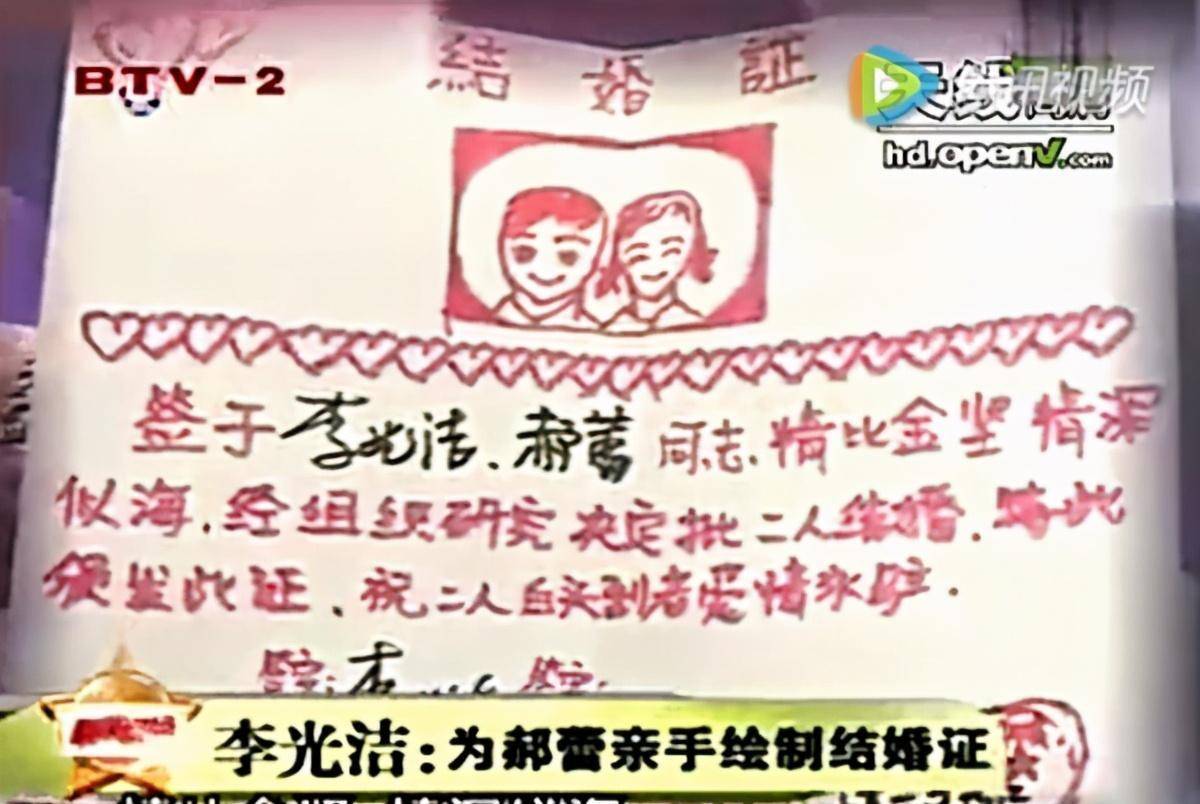 BTV-2
結婚証
腾讯视频
hd.openv.com
签于李光洁、郝蕾同志、情比金坚情深
似海，经组织研究决定批二人结婚，特此
颁发此证、祝二人白头到老爱情永驴.
李光洁:为郝蕾亲手绘制结婚证